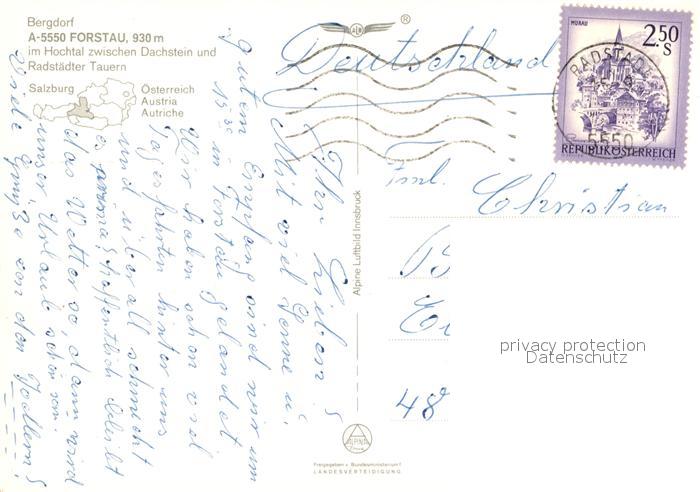 Bergdorf
A-5550 FORSTAU, 930 m
im Hochtal zwischen Dachstein und
Radstädter Tauern
Salzburg
Österreich
Austria
Autriche
®
MURAU
2.50
S
REPUBLIK ÖSTERREICH
RADSTADT
5550
Deutschland
Fml. Christian
48
privacy protection
Datenschutz
Alpine Luftbild Innsbruck
ALPINE
Freigegeben v. Bundesministerium f.
LANDESVERTEIDIGUNG
Ihr Lieben!
Mit viel Sonne u.
gutem Empfang sind wir um
15 30 in Forstau gelandet
Wir haben schon viel
Tagesfahrten hinter uns
und überall schmeckt
es hoffentlich bleibt
das Wetter so, dann wird
unser Urlaub schön
Viele Grüße von den